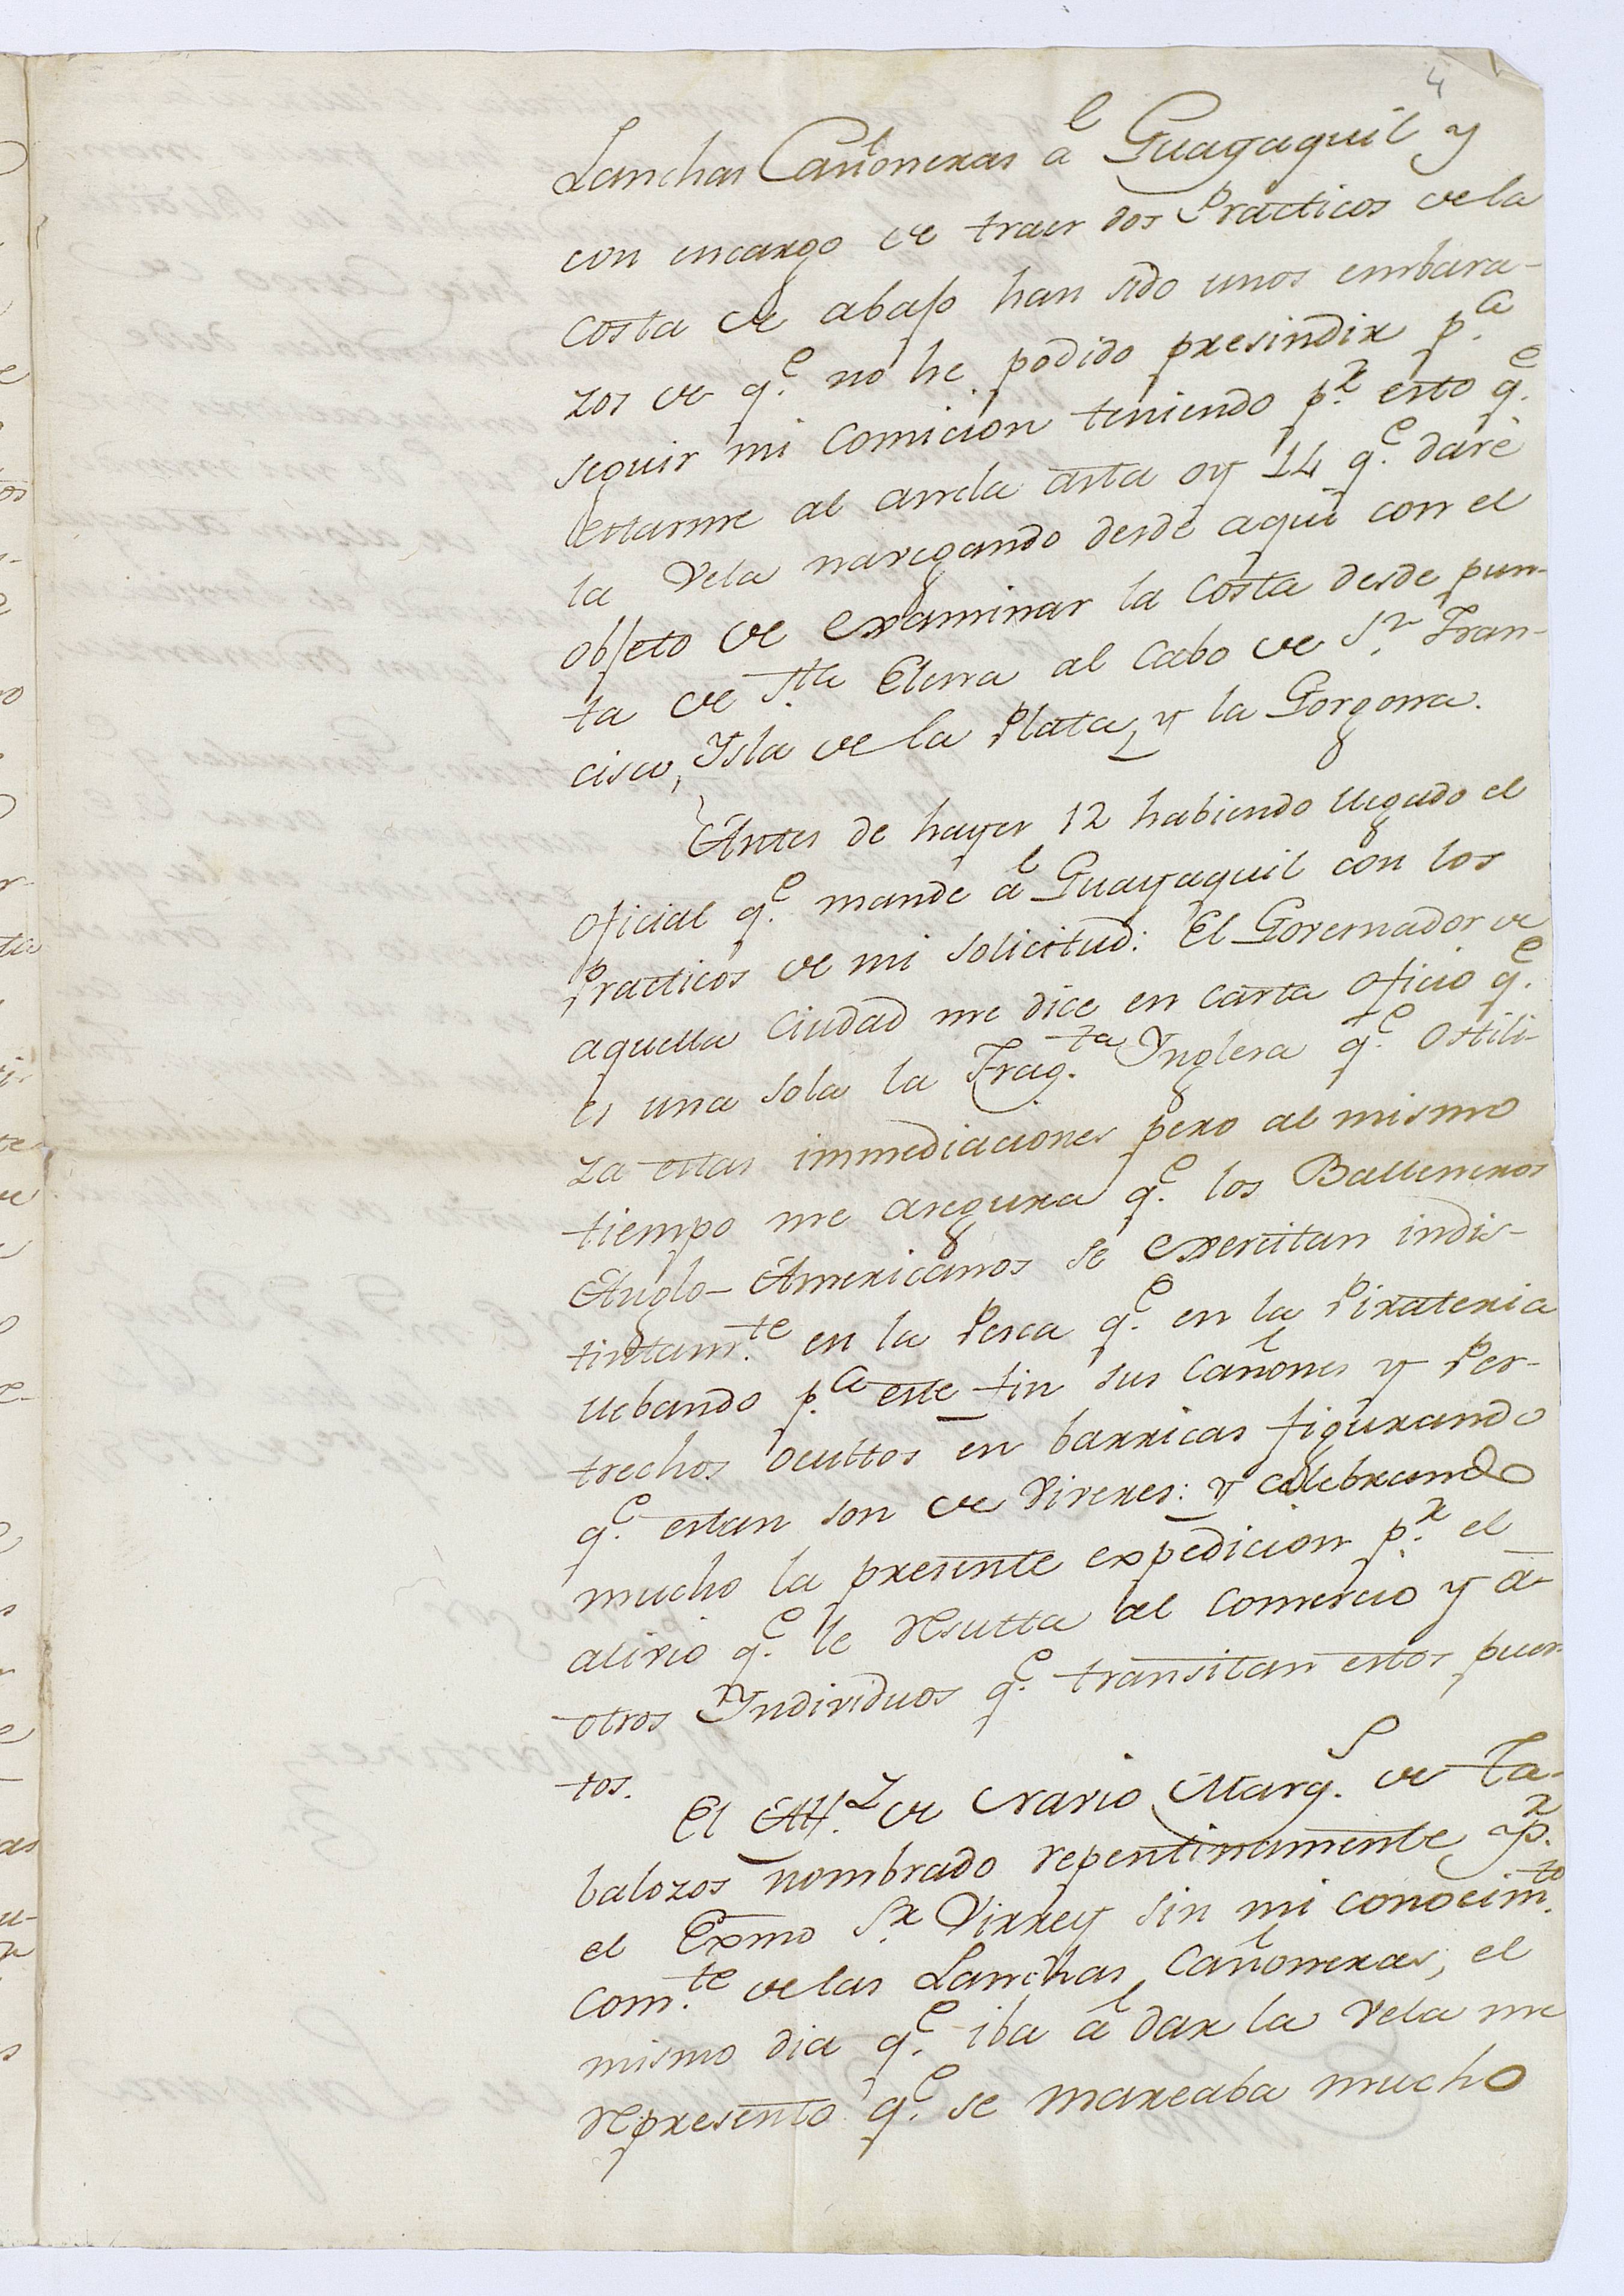 4
Lanchas Cañoneras á Guayaquil y
con encargo de traer dos Practicos de la
costa de abajo han sido unos embara-
zos de q.e no he podido presindir p.a
seguir mi comicion teniendo p.r esto q.e
estarme al ancla asta oy 14 q.e daré
la Vela navegando desde aqui con el
objeto de examinar la costa desde pun-
ta de S.ta Elena al Cabo de S.n Fran-
cisco, Ysla de la Plata, y la Gorgona.
Antes de hayer 12 habiendo llegado el
oficial q.e mande á Guayaquil con los
Practicos de mi solicitud: El Governador de
aquella Ciudad me dice en carta oficio q.e
es una sola la Frag.ta Ynglesa q.e ostili-
za estas immediaciones pero al mismo
tiempo me asegura q.e los Balleneros
Anglo-Americanos se exercitan indis-
tintam.te en la Pesca q.e en la Pirateria
llebando p.a este fin sus Cañones y Per-
trechos ocultos en barricas figurando
q.e estan son de Viveres: y celebrando
mucho la presente expedicion p.r el
alivio q.e le resulta al Comercio y á
otros Yndividuos q.e transitan estos puer-
tos.
El Alf.z de Navio Marq.s de Ta-
balozos nombrado repentinamente p.r
el Exmo S.r Virrey sin mi conocim.to
Com.te de las Lanchas Cañoneras, el
mismo dia q.e iba á dar la Vela me
represento q.e se mareaba mucho